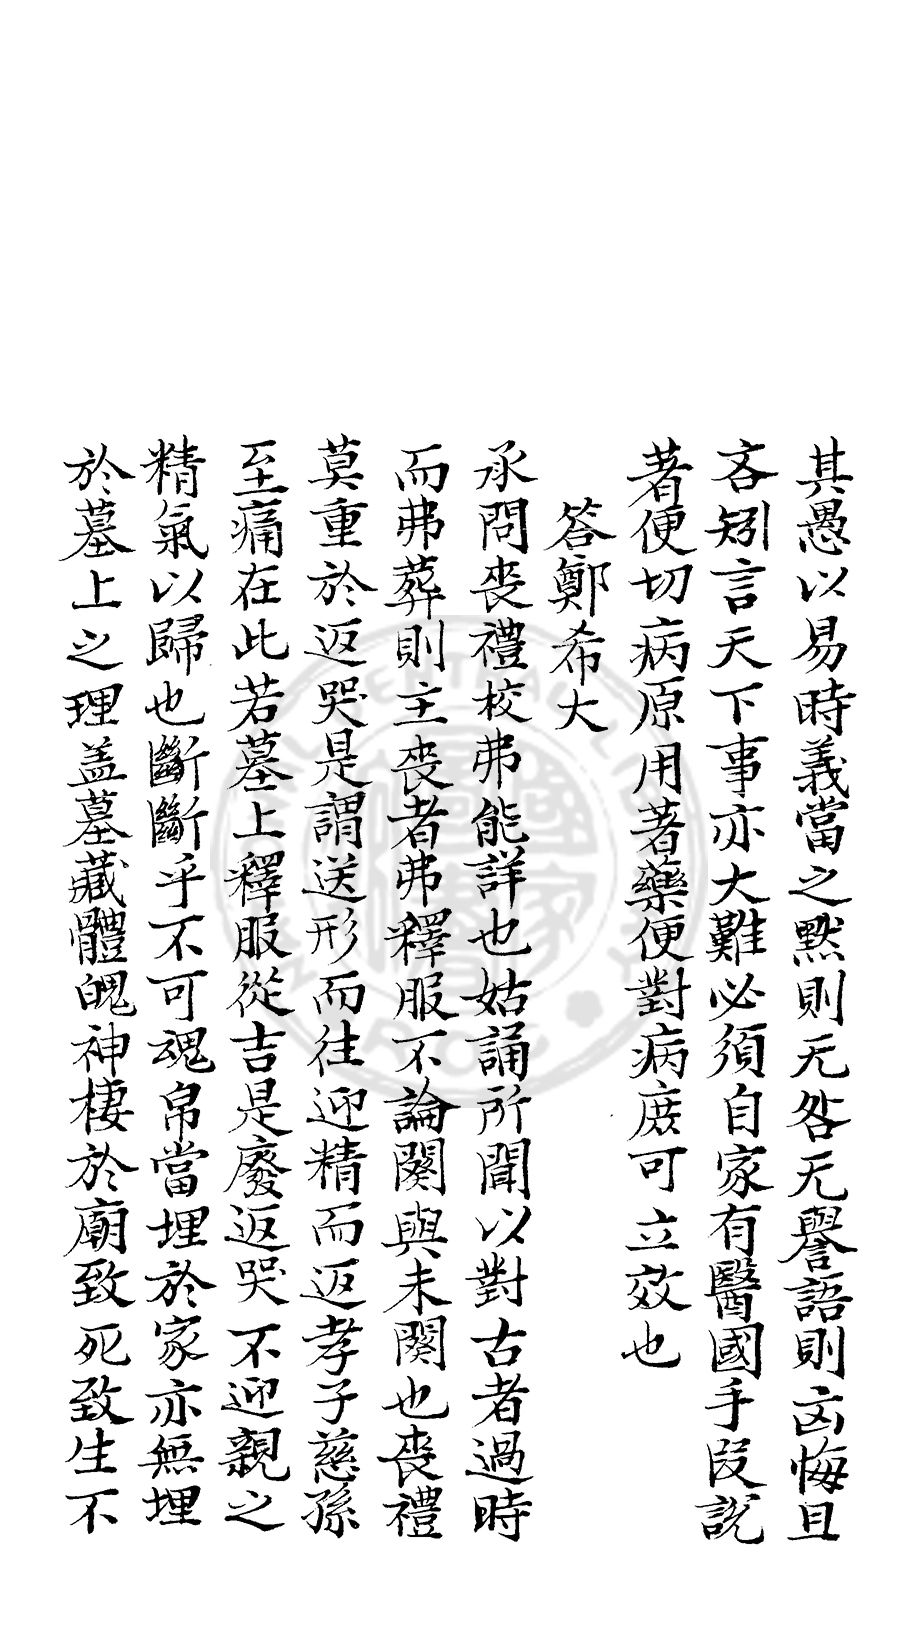 其愚以易時義當之默則无咎无譽語則凶悔且
吝矧言天下事亦大難必須自家有醫國手段說
著便切病原用著藥便對病庶可立效也
答鄭希大
承問喪禮校弗能詳也姑誦所聞以對古者過時
而弗葬則主喪者弗釋服不論闋與未闋也喪禮
莫重於返哭是謂送形而往迎精而返孝子慈孫
至痛在此若墓上釋服從吉是廢返哭不迎親之
精氣以歸也斷斷乎不可魂帛當埋於家亦無埋
於墓上之理盖墓藏體魄神棲於廟致死致生不